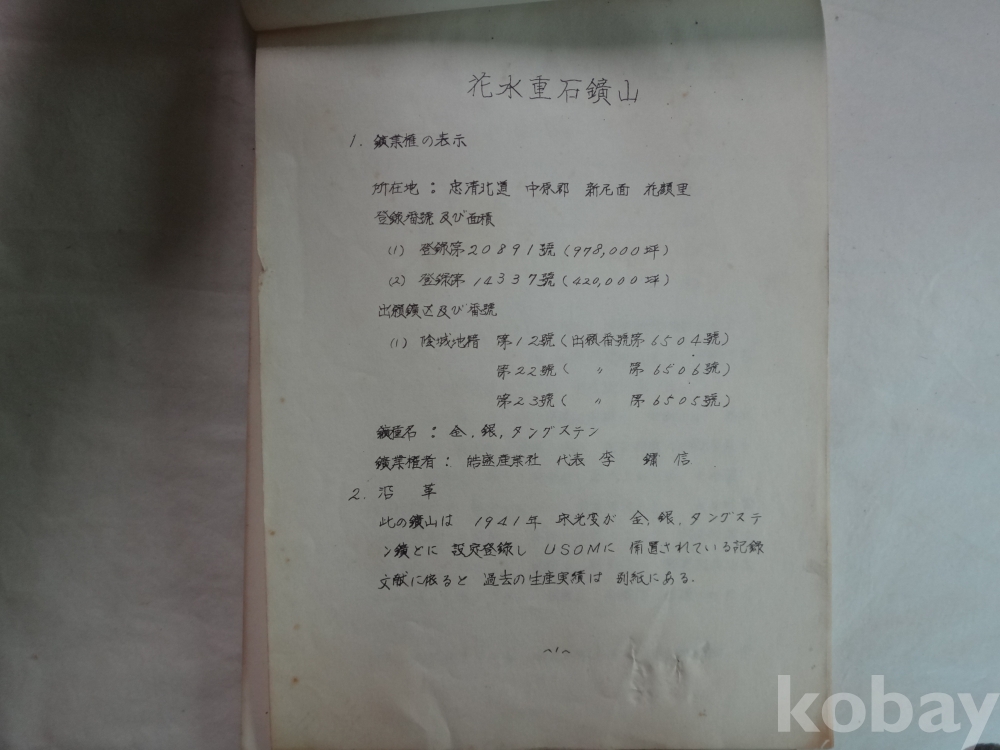 花水重石鑛山
1. 鑛業権の表示
所在地 : 忠清北道 中原郡 新尼面 花顔里
登錄番號及び面積
(1) 登錄第20891號 (978,000坪)
(2) 登錄第14337號 (420,000坪)
出願鑛区及び番號
(1) 陰城地籍 第12號 (出願番號第6504號)
第22號 ( 〃 第6506號)
第23號 ( 〃 第6505號)
鑛種名 : 金, 銀, タングステン
鑛業権者 : 産業社 代表 李 信
2. 沿 革
此の鑛山は 1941年 が 金, 銀, タングステ
ン鑛とに 設定登録し USOMに 備置されている記録
文献に依ると 過去の生産実績は 別紙にある.
~1~
kobay